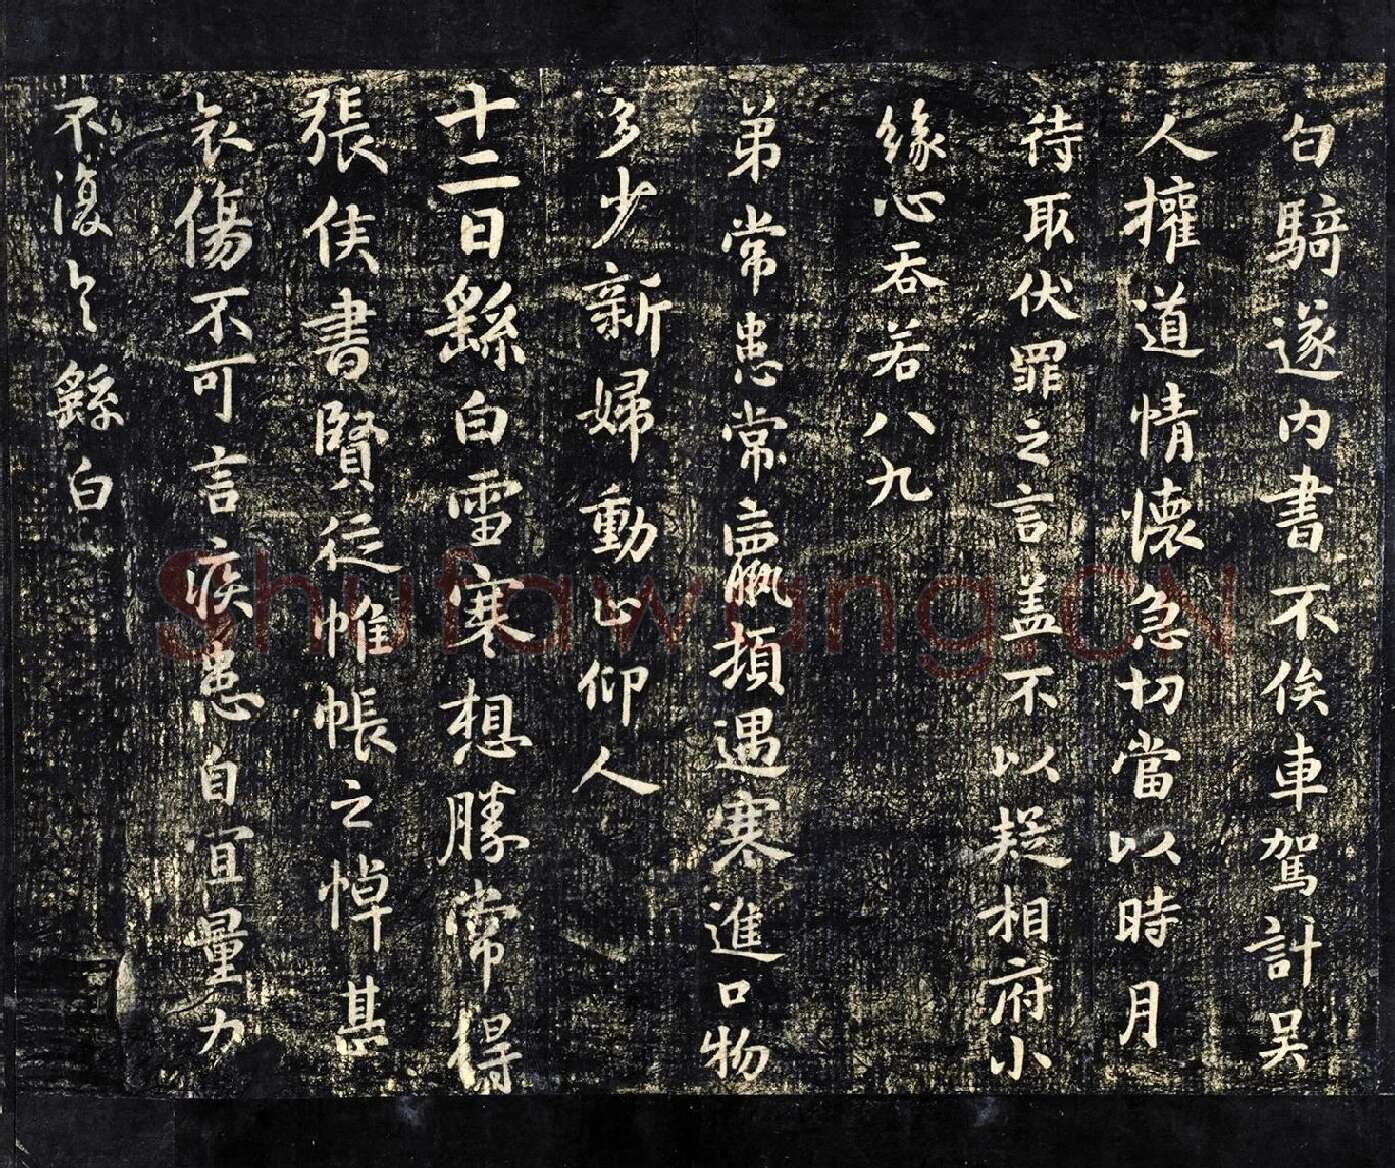 白騎遂內書不俟車駕計吳
人權道情懷急切當以時月
待取伏罪之言蓋不以疑相府小
緣心吞若八九
弟常患常羸頓遇寒進口物
多少新婦動止仰人
十二日繇白雪寒想勝常得
張侯書賢從帷帳之悼甚
哀傷不可言疾患自宜量力
不復 繇白
Shufawang.CN